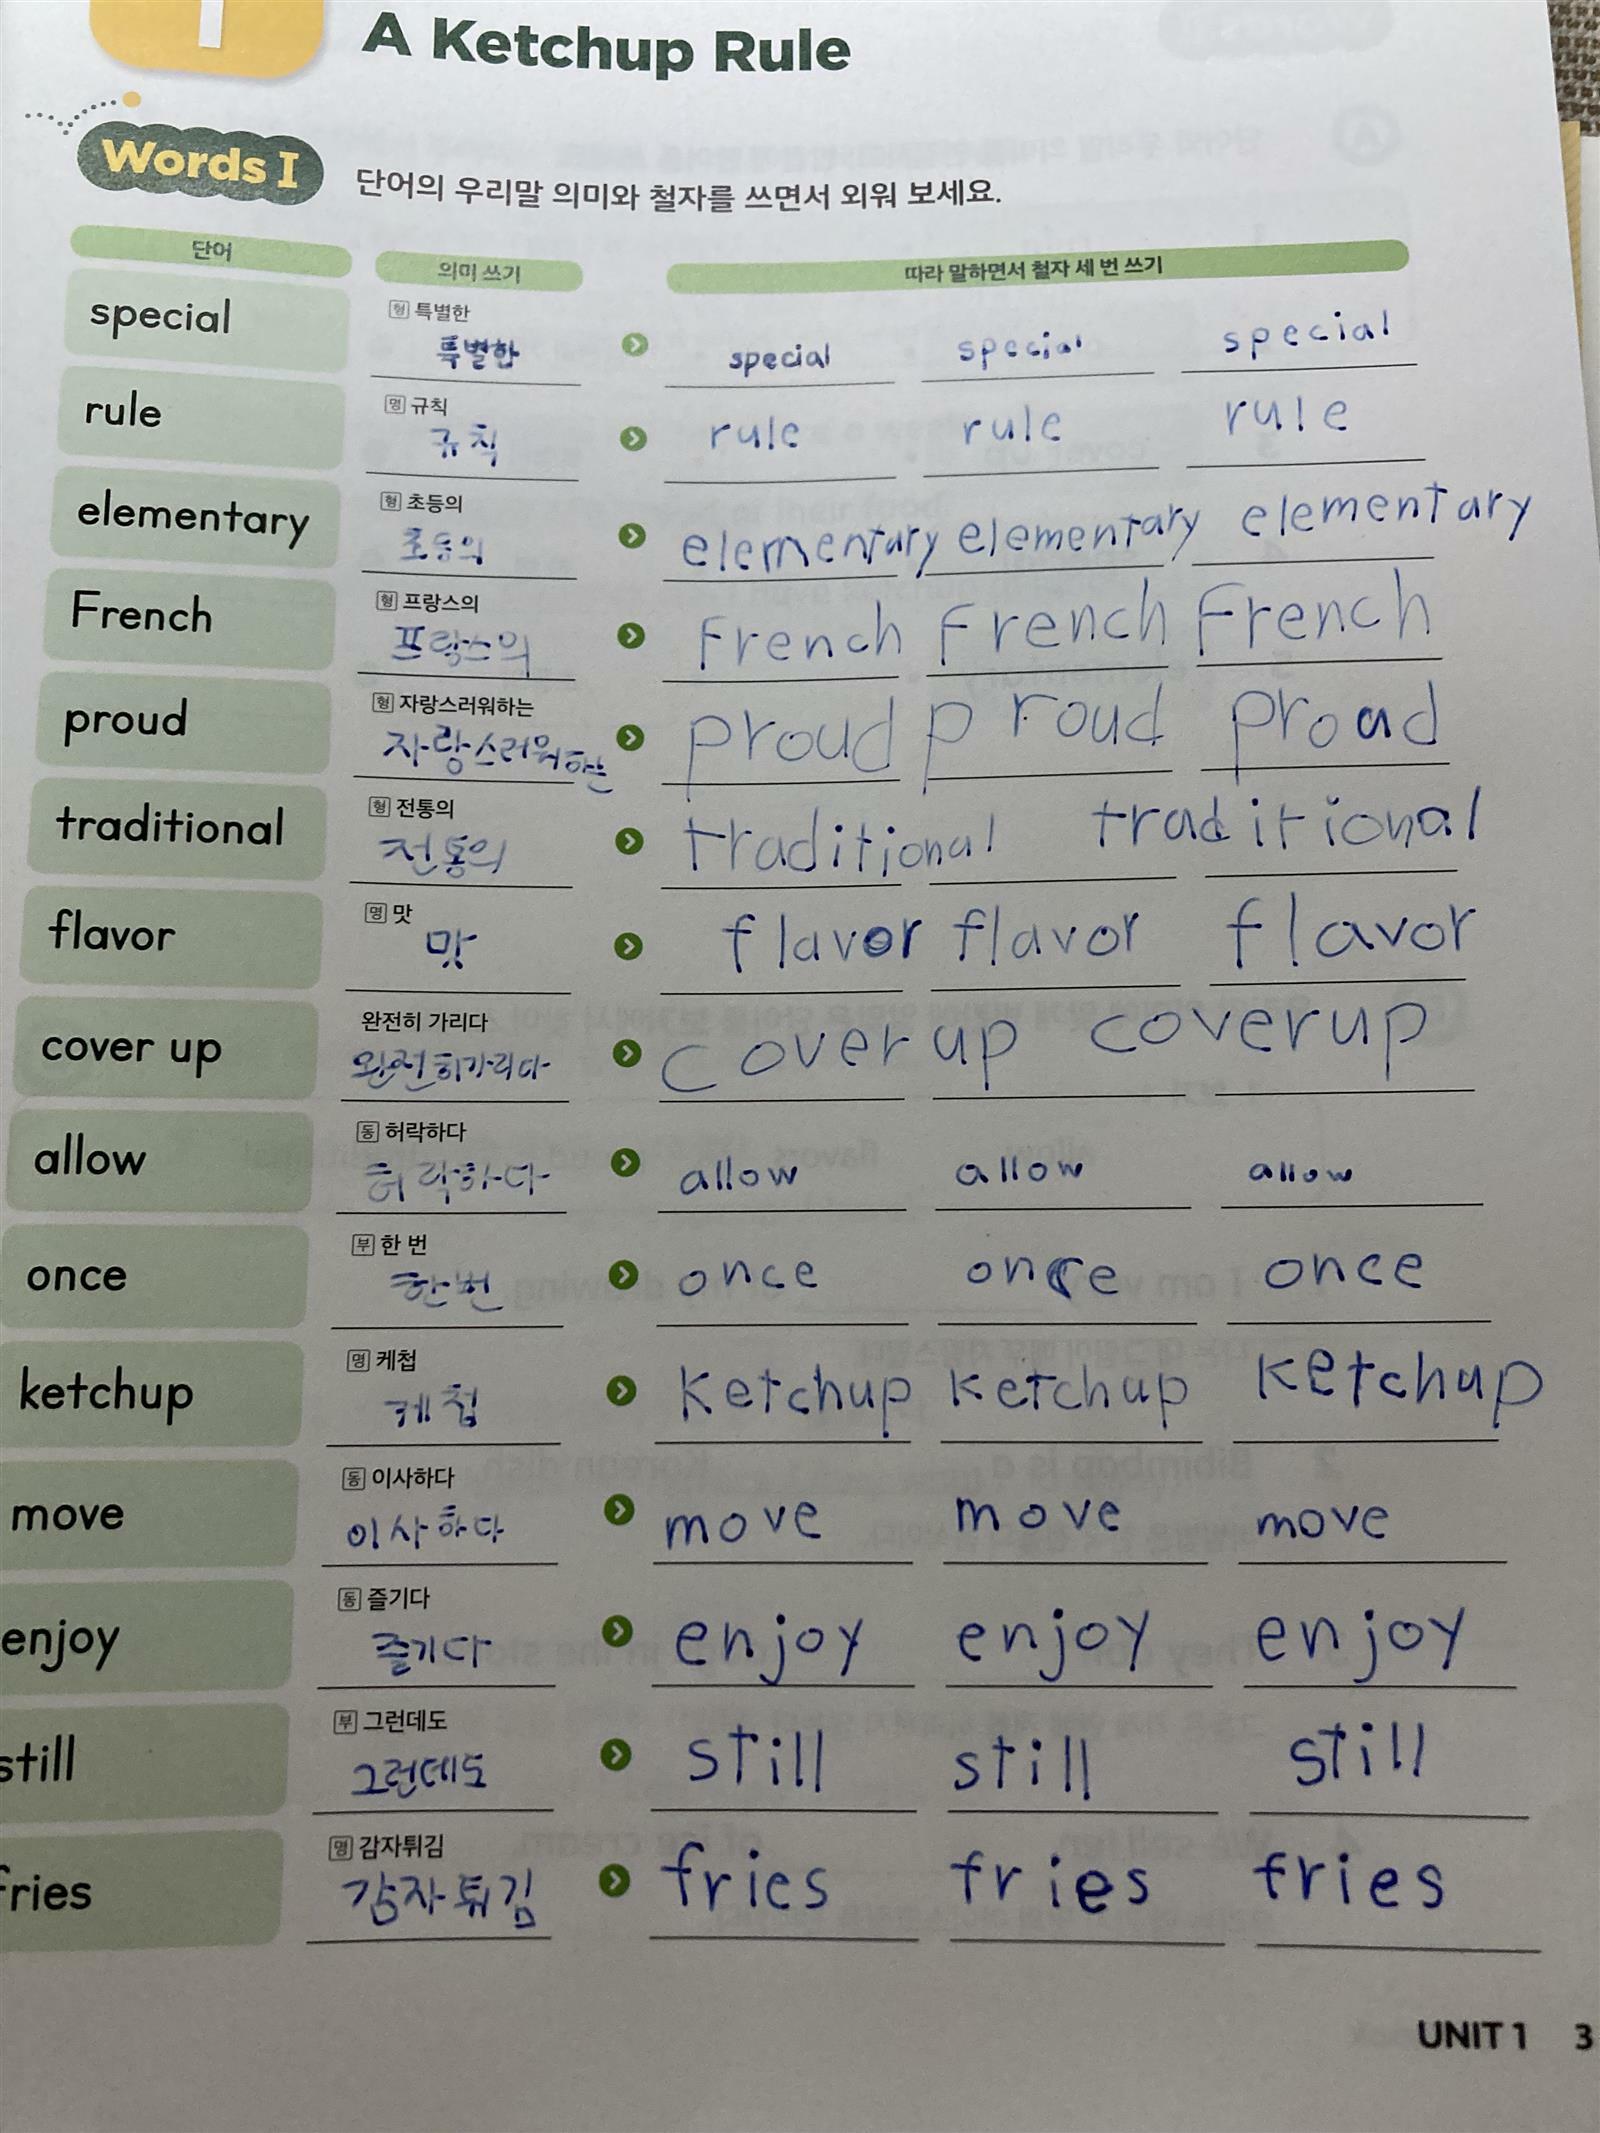 1
A Ketchup Rule
Words I 단어의 우리말 의미와 철자를 쓰면서 외워 보세요.
단어 의미 쓰기 따라 말하면서 철자 세 번 쓰기
special 형 특별한
특별한 special special special
rule 명 규칙
규칙 rule rule rule
elementary 형 초등의
초등의 elementary elementary elementary
French 형 프랑스의
프랑스의 French French French
proud 형 자랑스러워하는
자랑스러워하는 proud proud proad
traditional 형 전통의
전통의 traditional traditional
flavor 명 맛
맛 flavor flavor flavor
cover up 완전히 가리다
완전히가리다 cover up cover up
allow 동 허락하다
허락하다 allow allow allow
once 부 한 번
한번 once once once
ketchup 명 케첩
케첩 ketchup ketchup ketchup
move 동 이사하다
이사하다 move move move
enjoy 동 즐기다
즐기다 enjoy enjoy enjoy
still 부 그런데도
그런데도 still still still
fries 명 감자튀김
감자튀김 fries fries fries
UNIT 1 3